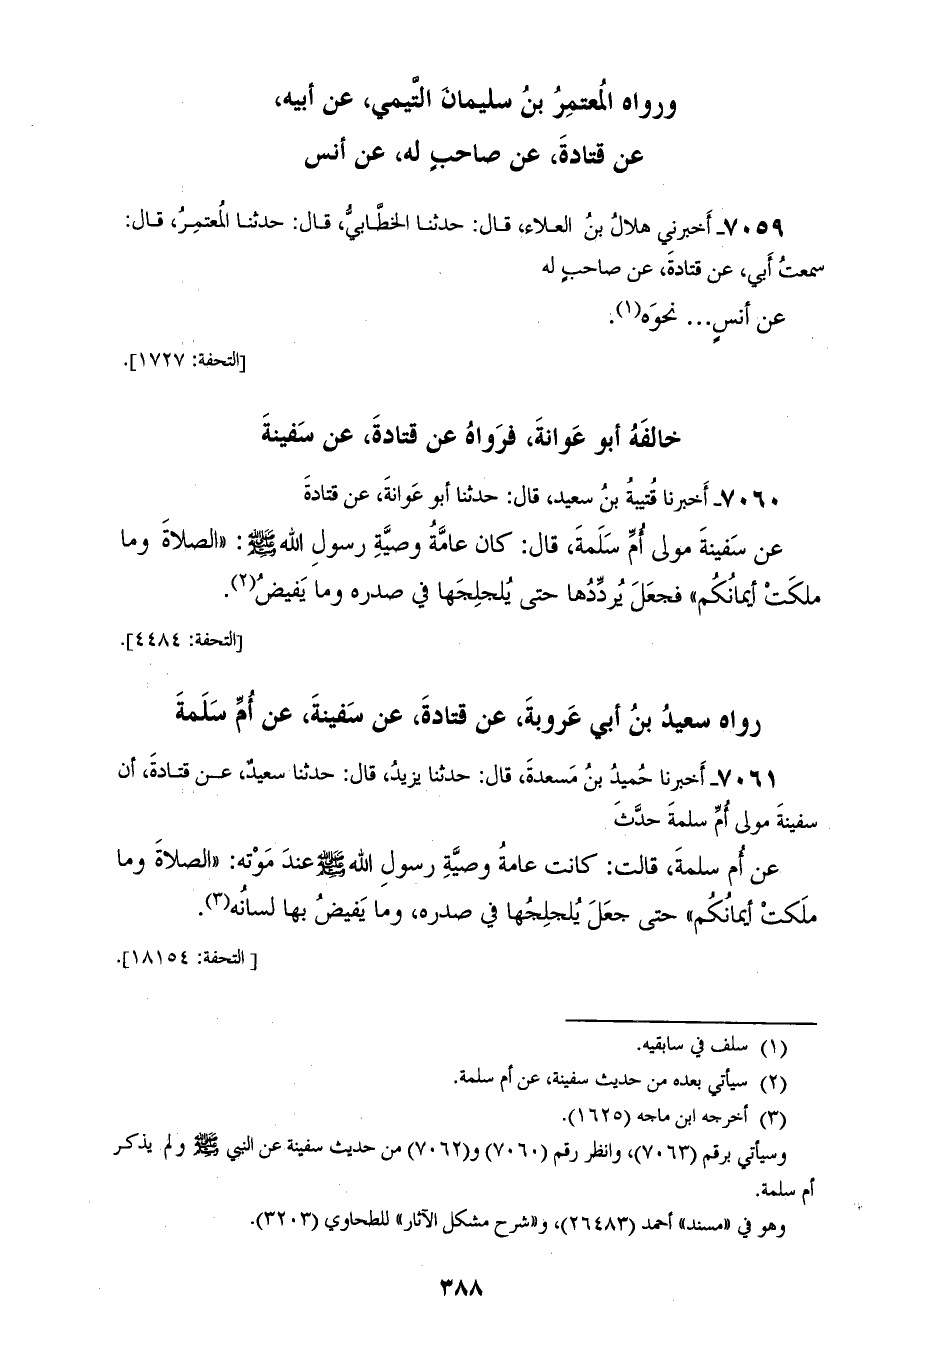 ورواه المُعتمِرُ بنُ سليمانَ التَّيمي، عن أبيه،
عن قتادةَ، عن صاحبٍ له، عن أنس
٧٠٥٩ـ أَخبرني هلالُ بنُ العـلاء، قـال: حدثنـا الخطَّـابيُّ، قـال: حدثنـا المُعتمِرُ، قـال:
سمعتُ أَبي، عن قتادةَ، عن صاحبٍ له
عن أنسٍ... نحوَه(١).
[التحفة: ١٧٢٧].
خالفَهُ أبو عَوانةَ، فرَواهُ عن قتادةَ، عن سَفينةَ
٧٠٦٠ـ أَخبرنا قُتيبةُ بنُ سعيد، قال: حدثنا أبو عَوانةَ، عن قتادةَ
عن سَفينةَ مولى أُمِّ سَلَمةَ، قال: كان عامَّةُ وصيَّةِ رسولِ الله ﷺ: «الصلاةَ وما
ملكَتْ أيمانُكُم» فجعَلَ يُردِّدُها حتى يُلجلِجَها في صدره وما يَفيضُ(٢).
[التحفة: ٤٤٨٤].
رواه سعيدُ بنُ أبي عَروبةَ، عن قتادةَ، عن سَفينةَ، عن أُمِّ سَلَمةَ
٧٠٦١ـ أَخبرنا حُميدُ بنُ مَسعدةَ، قال: حدثنا يزيدُ، قال: حدثنا سعيدٌ، عـن قتـادةَ، أن
سفينةَ مولى أُمِّ سلمةَ حدَّثَ
عن أُم سلمةَ، قالت: كانت عامةُ وصيَّةِ رسولِ الله ﷺ عندَ مَوْته: «الصلاةَ وما
ملَكتْ أيمانُكُم» حتى جعَلَ يُلجلِجُها في صدره، وما يَفيضُ بها لسانُه(٣).
[ التحفة: ١٨١٥٤].
(١) سلف في سابقيه.
(٢) سيأتي بعده من حديث سفينة، عن أم سلمة.
(٣) أخرجه ابن ماجه (١٦٢٥).
وسيأتي برقم (٧٠٦٣)، وانظر رقم (٧٠٦٠) و(٧٠٦٢) من حديث سفينة عن النبي ﷺ و لم يذكـر
أم سلمة.
وهو في «مسند» أحمد (٢٦٤٨٣)، و«شرح مشكل الآثار» للطحاوي (٣٢٠٣).
٣٨٨